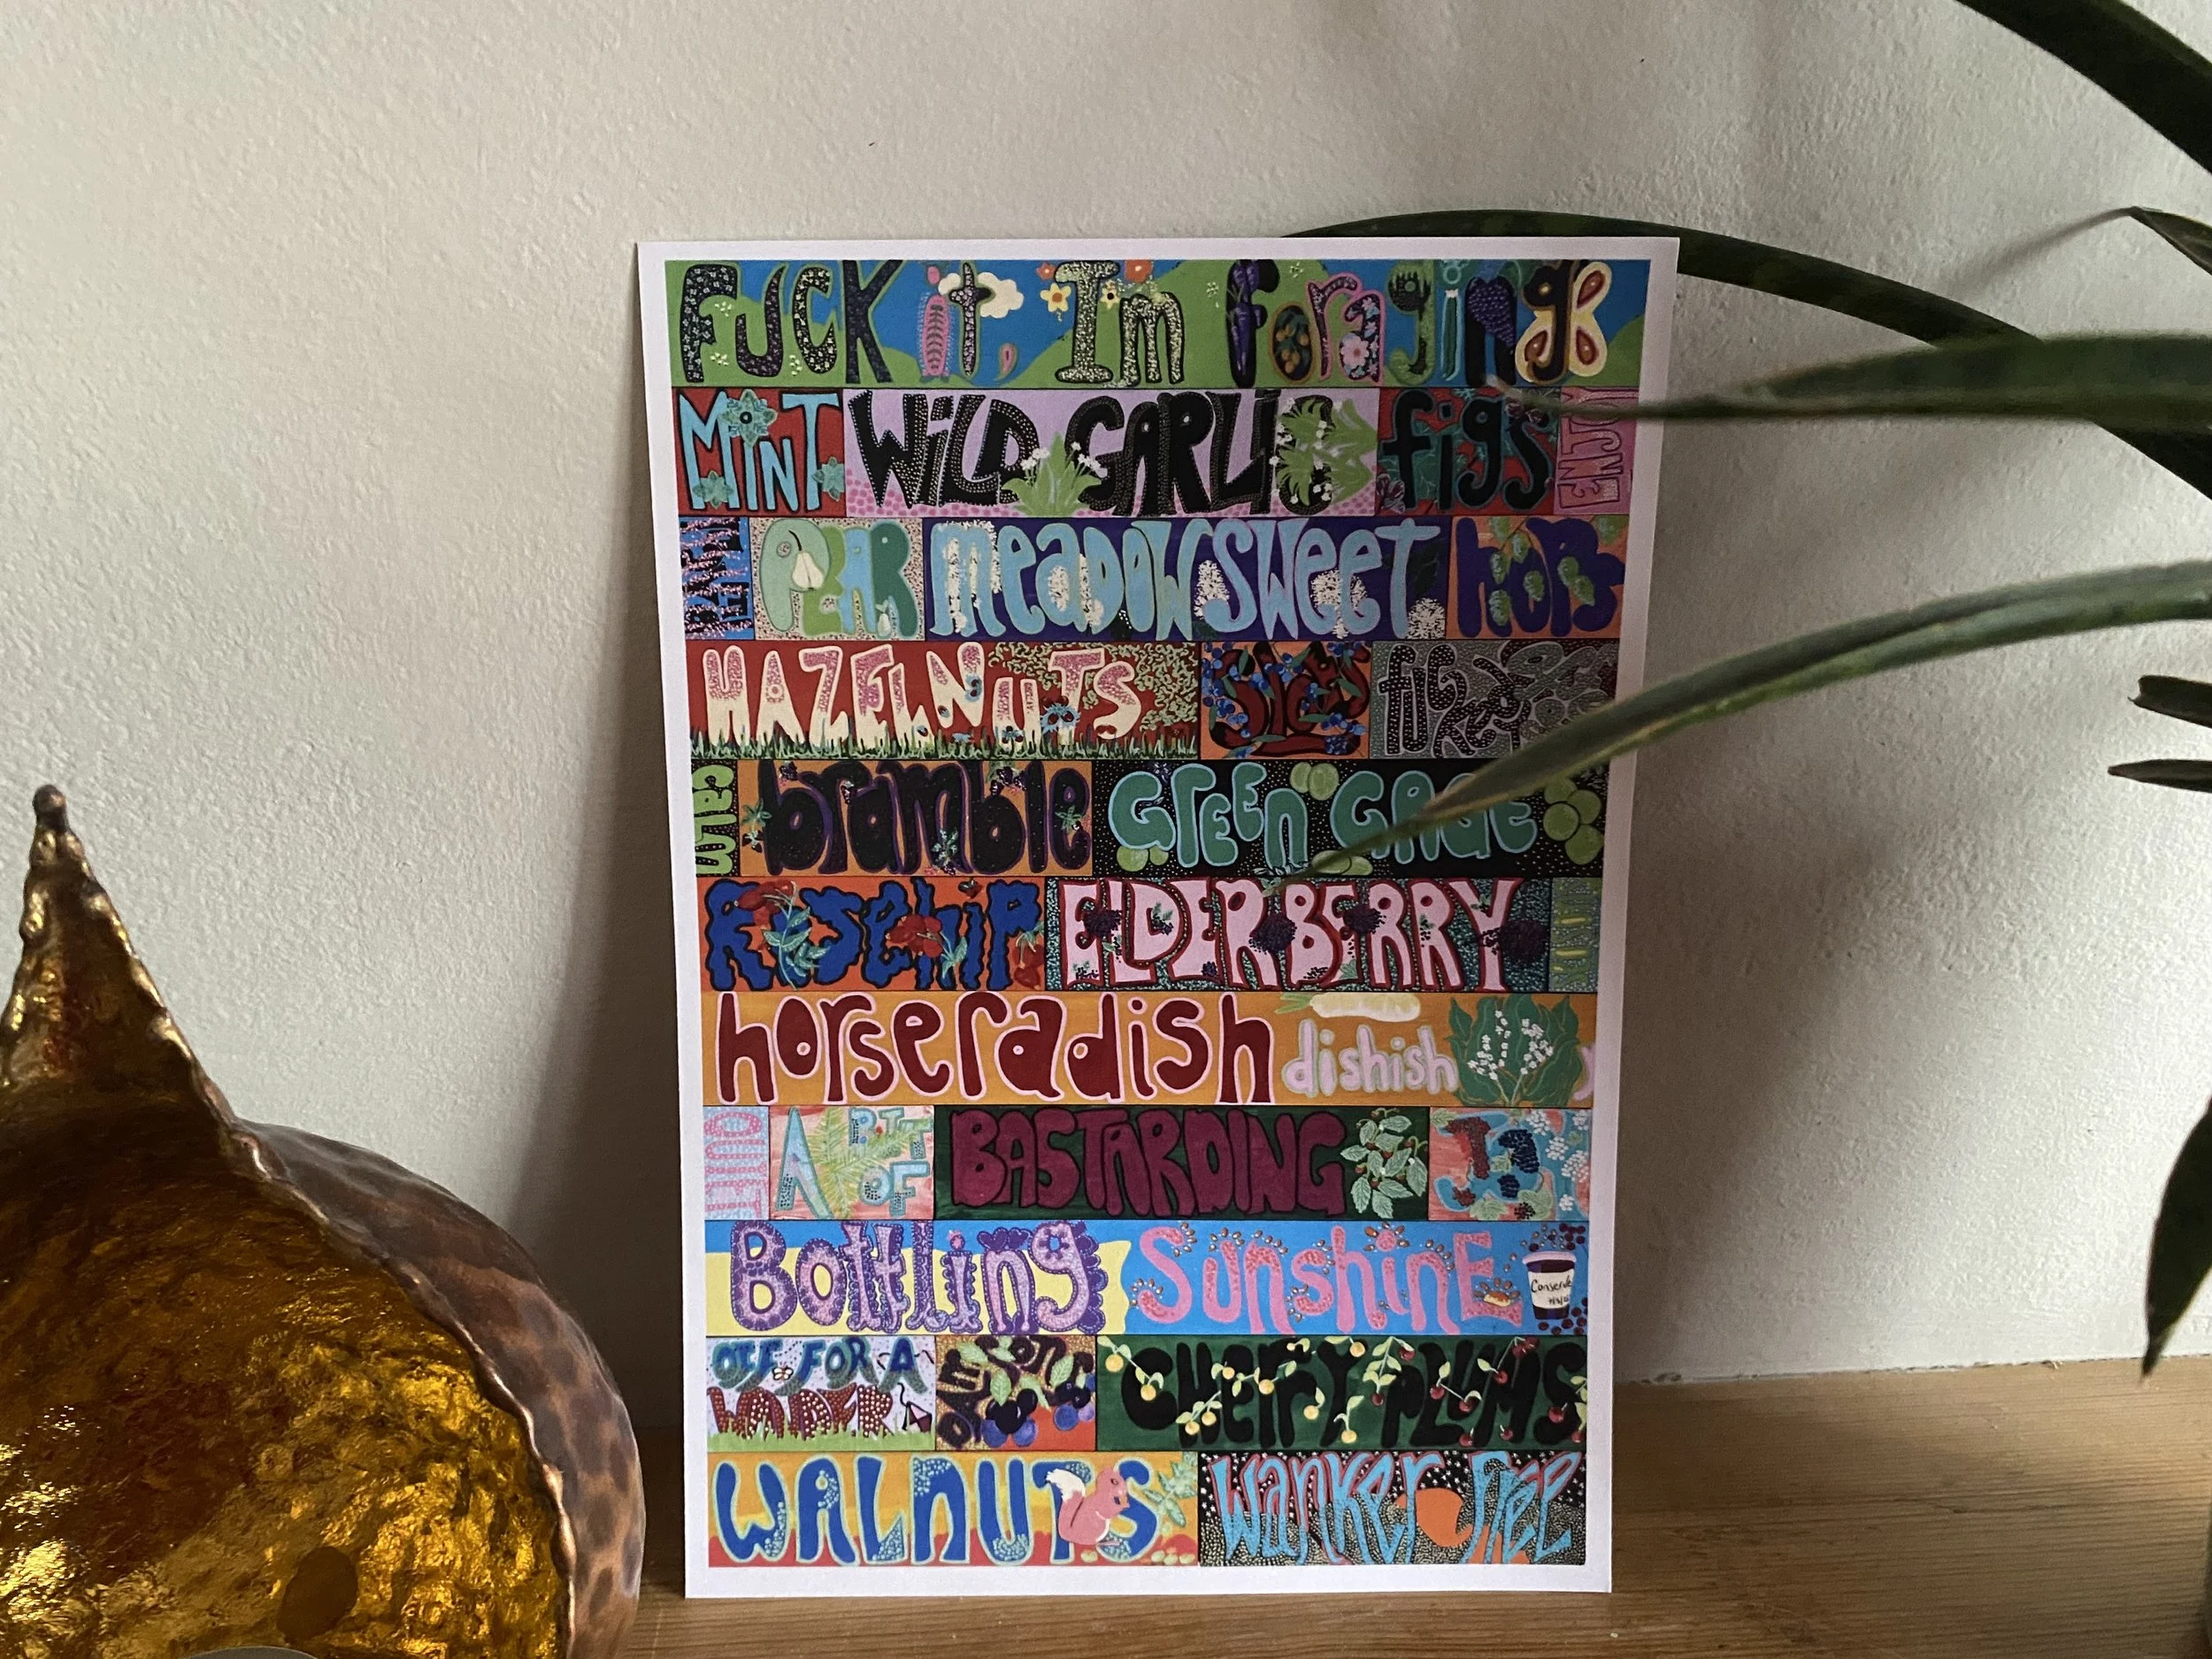 FUCK it, Im foraging
MINT WILD GARLIC figs ENJOY
PEAR meadowsweet hops
HAZELNUTS Sloes
calm bramble GREEN GAGE
Rosehip ELDERBERRY
horseradish dishish
ART OF BASTARDING
Bottling Sunshine Conserve
OFF FOR A WANDER DAMSONS CHERRY PLUMS
WALNUTS Wanker Free